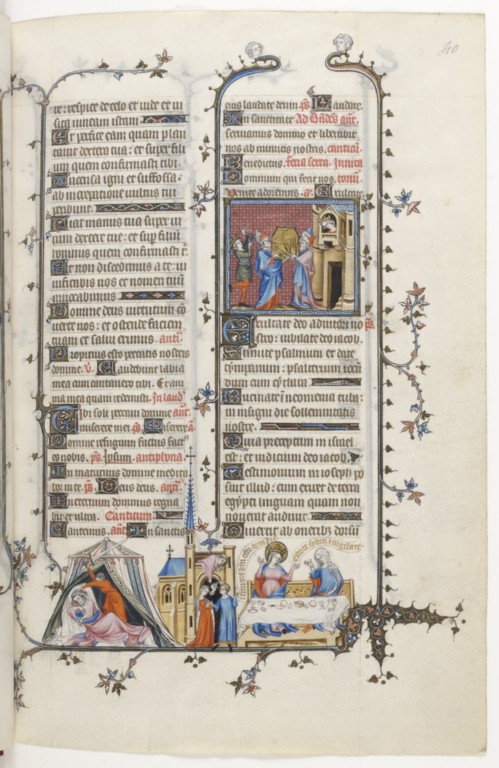 te: respice de celo et vide et vi
sita vineam istam
Et perfice eam quam plan
tavit dextera tua: et super fili
um quem confirmasti tibi.
Incensa igni et suffossa.
ab increpatione vultus tui
peribunt.
Fiat manus tua super vi
rum dextere tue: et sup filium
hominis quem confirmasti t.
Et non discedimus a te: vi
vificabis nos et nomen tuum
invocabimus
Domine deus virtutum co
verte nos: et ostende faciem
tuam et salvi erimus. anti.
Propitius esto peccatis nostris
domine. V. Gaudebunt labia
mea cum cantavero tibi. Et ani
ma mea quam redemisti. In laud
Tibi soli peccavi domine ant.
Miserere mei ps. Miserere a.
Domine refugium factus
es nobis. ps. Ipsum. antiphona.
In matutinis domine medita
bor in te. ps. Deus deus. ant.
In eternum dominus regna
bit et ultra. Canticum
Cantemus. ant. In sanctis
eius laudate deum. ps. Laudate.
In sanctitate Ad Bndes ant.
serviamus domino et liberavit
nos ab inimicis nostris. cantic.
Benedictus. feria sexta. Invita
Dominum qui fecit nos.
Venite adoremus. a. Exultate.
Exultate deo adiutori no ps.
stro: iubilate deo iacob.
Sumite psalmum et date
tympanum: psalterium iocu
dum cum cythara
Buccinate in neomenia tuba:
in insigni die sollennitatis
nostre.
Quia preceptum in israel
est: et iudicium deo iacob.
Testimonium in ioseph po
suit illud: cum exiret de terra
egypti linguam quam non
noverat audivit.
Divertit ab oneribz dorsum
40